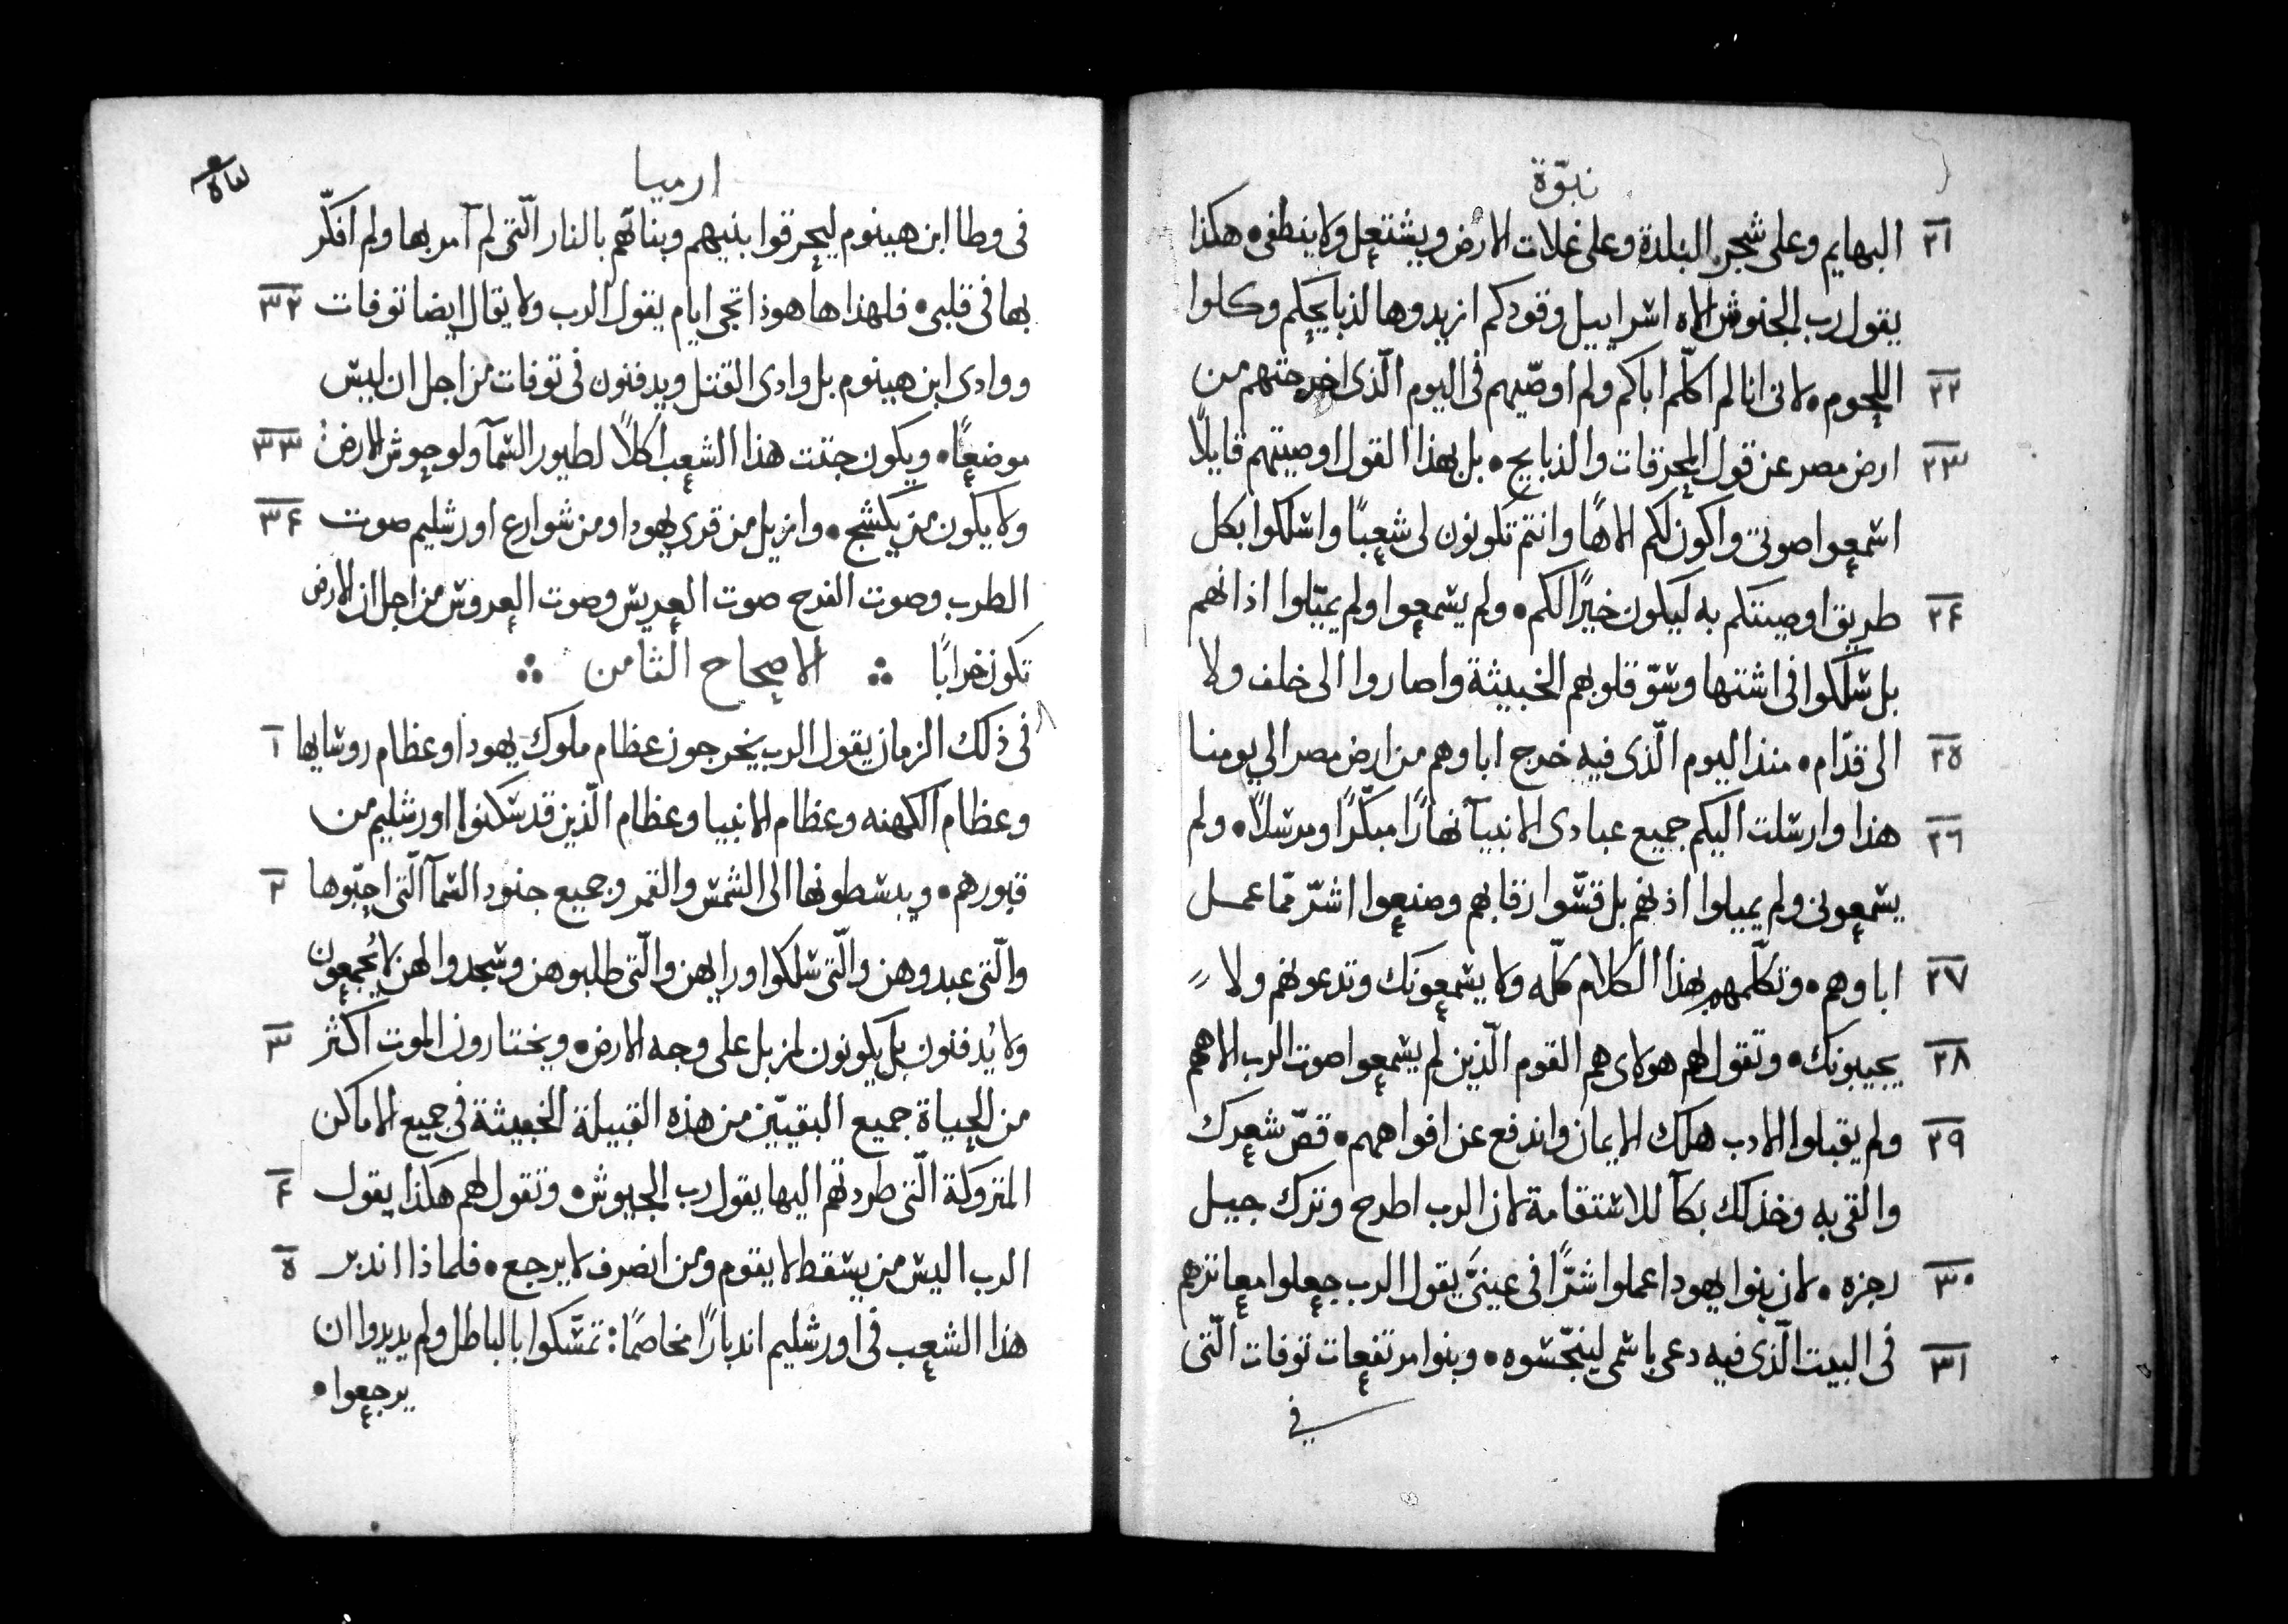 نبوّة
البهايم وعلى شجر البلدة وعلى غلات الارض ويشتعل ولا ينطفى • هكذا ٢١
يقول رب الجنوش الاه اسراييل وقودكم ازيدوها لذبايحكم وكلوا
اللحوم • لاني انا لم اكلّم اباكم ولم اوصّيهم في اليوم الّذي اخرجتهم من ٢٢
ارض مصر عن قول المحرقات والذبايح • بل بهذا القول اوصيتهم قايلاً ٢٣
اسمعوا صوتي واكون لكم الاهًا وانتم تكونون لي شعبًا واسلكوا بكل
طريق اوصيتكم به ليكون خيرًا لكم • ولم يسمعوا ولم يميّلوا اذانهم ٢٤
بل سلكوا في اشتها وسوّ قلوبهم الخبيثة واصاروا الى خلف ولا
الى قدّام • منذ اليوم الّذي فيه خرج اباوهم من ارض مصر الي يومنا ٢٥
هذا وارسلت اليكم جميع عبادى الانبيآ نهارًا مبكّرًا ومرسلاً • ولم ٢٦
يسمعوني ولم يميلوا اذنهم بل قسّوا رقابهم وصنعوا اشرّ ممّا عمل
اباوهم • وتكلّمهم بهذا الكلام كلّه ولا يسمعونك وتدعوهم ولا ٢٧
يجيبونك • وتقول لهم هولاى هم القوم الّذين لم يسمعوا صوت الرب الاههم ٢٨
ولم يقبلوا الادب هلك الايمان واندفع عن افواههم • قصّ شعرك ٢٩
والقي به وخذ لك بكآ للاستقامة لان الرب اطرح وترك جيل
رجزه • لان بنوا يهودا عملوا شرًّا في عينيَّ يقول الرب جعلوا معاثرهم ٣٠
في البيت الّذي فيه دعي باسمي لينجّسوه • وبنوا مرتفعات توفات الّتي ٣١
في
ارميا
في وطا ابن هينوم ليحرقوا بنيهم وبناتهم بالنار الّتي لم آمر بها ولم افكّر
بها في قلبي • فلهذا ها هوذا تجي ايام يقول الرب ولا يقال ايضا توفات ٣٢
ووادى ابن هينوم بل وادى القتل ويدفنون في توفات من اجل ان ليس
موضعًا • ويكون جثت هذا الشعب اكلاً لطيور السمآ ولوحوش الارض ٣٣
ولا يكون من يكشح • وازيل من قرى يهودا ومن شوارع اورشليم صوت ٣٤
الطرب وصوت الفرح صوت العريس وصوت العروس من اجل ان الارض
تكون خرابًا ∴ الاصحاح الثامن ∴
في ذلك الزمان يقول الرب يخرجون عظام ملوك يهودا وعظام روسايها ١
وعظام الكهنه وعظام الانبيا وعظام الّذين قد سكنوا اورشليم من
قبورهم • ويبسطونها الى الشمس والقمر وجميع جنود السمآ الّتي احبّوها ٢
والّتي عبدوهن والّتي سلكوا ورايهن والّتي طلبوهن وسجدوا لهن لا يُجمعون
ولا يُدفنون بل يكونون لمزبل على وجه الارض • ويختارون الموت اكثر ٣
من الحياة جميع البقيّين من هذه القبيلة الخبيثة في جميع الاماكن
المتروكة الّتي طردتهم اليها يقول رب الجيوش • وتقول لهم هكذا يقول ٤
الرب اليس من يسقط لا يقوم ومن انصرف لا يرجع • فلماذا اندبر ٥
هذا الشعب في اورشليم اندبارًا مخاصمًا: تمسّكوا بالباطل ولم يريدوا ان
يرجعوا •